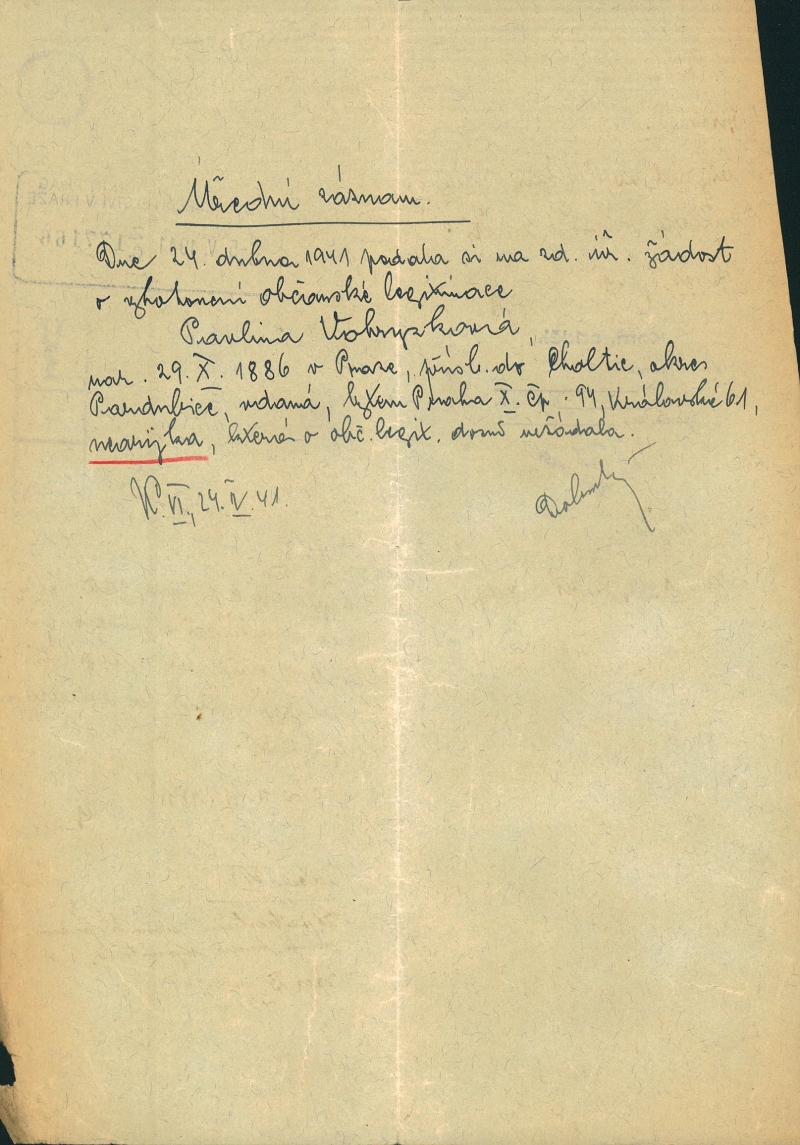 Úřední záznam.
Dne 24. dubna 1941 podala si na zd. úř. žádost
o vyhotovení občanské legitimace
Pavlina Vobryzková,
nar. 29. X. 1886 v Praze, přísl. do Choltic, okres
Pardubice, vdaná, bytem Praha X. čp. 94, Královské 61,
neárijka, která o obč. legit. dosud nežádala.
VI., 24. IV. 41.